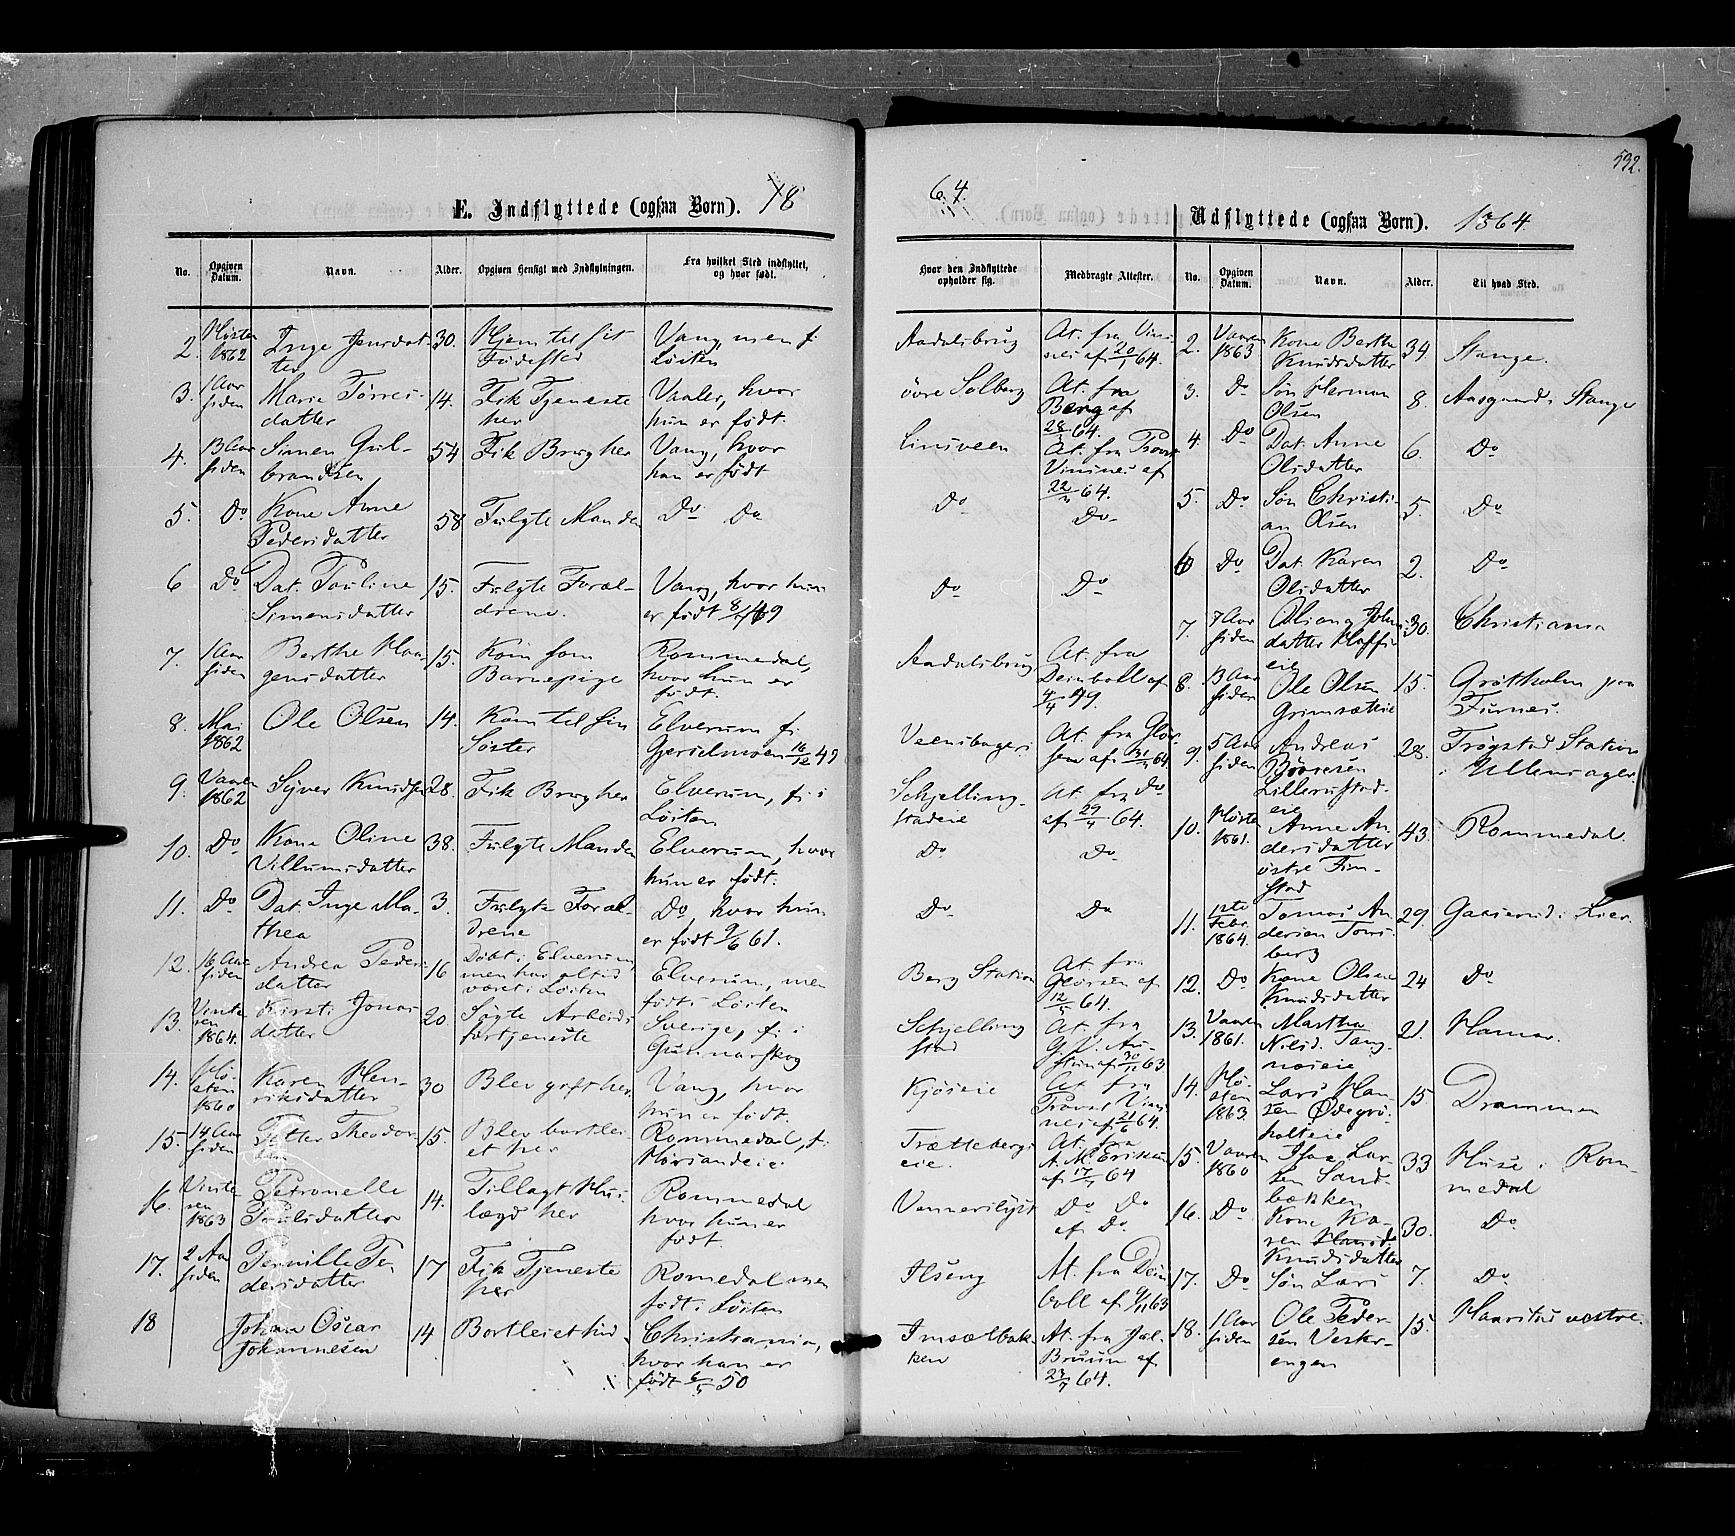 532.
E. Indflyttede (ogsaa Born). 18
64.
Udflyttede (ogsaa Born). 1864.
No. Opgiven Datum. Navn. Alder. Opgiven Hensigt med Indflytningen. Fra hvilket Sted indflyttet, og hvor født.
Hvor den Indflyttede opholder sig. Medbragte Attester. No. Opgiven Datum. Navn. Alder. Til hvad Sted.
2. Høsten 1862 Inge Jensdatter 30. Hjem til sit Fødested Vang men f. Løiten
3. 1 Aar siden Marie Torresdatter 14. Fik Tjeneste her Vaaler, hvor hun er født.
4. 13 Aar siden Simen Gulbrandsen 54 Fik Brug her Vang, hvor han er født
5. Do Kone Anne Pedersdatter 58 Fulgte Manden Do Do
6 Do Dat. Pauline Simensdatter 15. Fulgte Forældrene. Vang, hvor hun er født
7. 1 Aar siden Berthe Haagensdatter 15. Kom som Barnepige Rommedal, hvor hun er født.
8. Mai 1862 Ole Olsen 14. Kom til sin Søster Elverum f. 16/12 49
9. Vaaren 1862 Syver Knudsen 28. Fik Brug her Elverum, f. i Løiten
10. Do Kone Oline Villumsdatter 38. Fulgte Manden Elverum, hvor hun er født.
11. Do Dat. Inge Mathea 3. Fulgte Forældrene Do, hvor hun er født 9/6 61.
12. 16 Aar siden Andrea Pedersdatter 16 Døbt i Elverum, men har altid været i Løiten Elverum, men født i Løiten
13. Vinteren 1864. Kirsti Jonasdatter 20. Søgte Arbeidsfortjeneste Sverige, f. i Gunnarskog
14. Høsten 1860 Karen Henriksdatter 30 Blev gift her Vang, hvor hun er født.
15. 14 Aar siden Petter Theodor 15. Blev bortleiet her Rommedal, f.
16. Vinteren 1863 Petronelle Poulsdatter 14. Tillagt Huslægd her Rommedal hvor hun er født.
17. 2 Aar siden Pernille Pedersdatter 17 Fik Tjeneste her Romedal men født i Løiten
18 Johan Oscar Johannesen 14 Bortleiet hid Christiania, hvor han er født 6/5 50
Aadalsbrug At. fra
øvre Solberg At. fra Berg af 28/ 64.
Linsveen At. fra Provst af 22/ 64.
Do Do
Do Do
Aadalsbrug At. fra Deinboll af
At. fra af 31/ 64
Schjellingstadeie At. fra Do af 29/4 64.
Do Do
Do Do
Berg Station At. fra af 12/5 64.
Schjellingstad At. fra af 30/11 63
Kjøseie At. fra Provst af 21/6 64.
Trættebergseie. At. fra A. M. Eriksen af 17/ 64
Do Do af Do
Ilseng At. fra Deinboll af 9/11 63
Imsælbakken At. fra Jal. Bruun af 23/7 64.
2. Vaaren 1863 Kone Berthe Knudsdatter 34 Stange.
3. Do Søn Herman Olsen 8. Aasgaard i Stange
4. Do Dat. Anne Olsdatter 6. Do
5. Do Søn Christian Olsen 5. Do
6 Do Dat. Karen Olsdatter 2. Do
7. 7 Aar siden 30. Christiania
8. 13 Aar siden Ole Olsen 15. Grøtholm paa Furnes.
9. 5 Aar siden Andreas 28. Trøgstad Station i Ullensager
10. Høsten 1861. Anne Andersdatter østre Finstad 43. Rommedal.
11. Febr. 1864. Tomas Andersen 29. i Lier.
12. Do Kone Oline Knudsdatter 24 Do
13. Vaaren 1861. Martha Nilsd. 21. Hamar.
14. Høsten 1863 Lars Hansen 15 Drammen
15. Vaaren 1860 Isaa Larsen Sandbækken 33 Huse i Rommedal
16. Do Kone Karen Knudsdatter 30. Do
17. Do Søn Lars 7. Do
18. 1 Aar siden Ole Pedersen Vestrengen 15. Haarstad vestre.